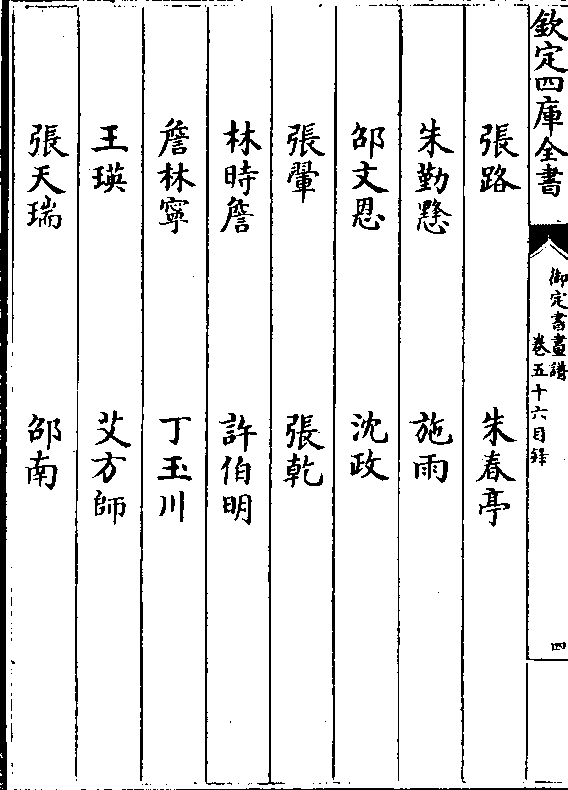 欽定四庫全書
御定書畫譜
卷五十六目錄
四
張路 朱春亭
朱勤𤍠 施雨
邵文恩 沈政
張翬 張乾
林時詹 許伯明
詹林寧 丁玉川
王瑛 艾方師
張天瑞 邵南